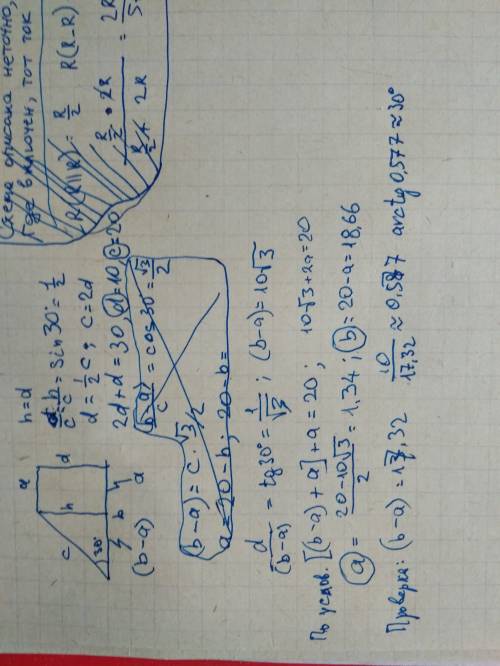 Схема описана неточно,
где включен, тот ток
R(R||R) = R/2 R(R-R)
R/2 • 2R = 2R
R/2 + 2R 5
h=d
h/c = sin 30° = 1/2
d = 1/2 c; c=2d
2d+d=30 d=10 c=20
(b-a)/c = cos 30° = √3/2
(b-a) = c·√3/2
a = 20-b; 20-b=
a
c h d
30°
b a
(b-a)
d/(b-a) = tg30° = 1/√3; (b-a)=10√3
По услов. [(b-a)+a]+a=20; 10√3+2a=20
a = (20-10√3)/2 = 1,34; b=20-a=18,66
Проверка: (b-a)=17,32 10/17,32 ≈ 0,577 arctg 0,577≈30°